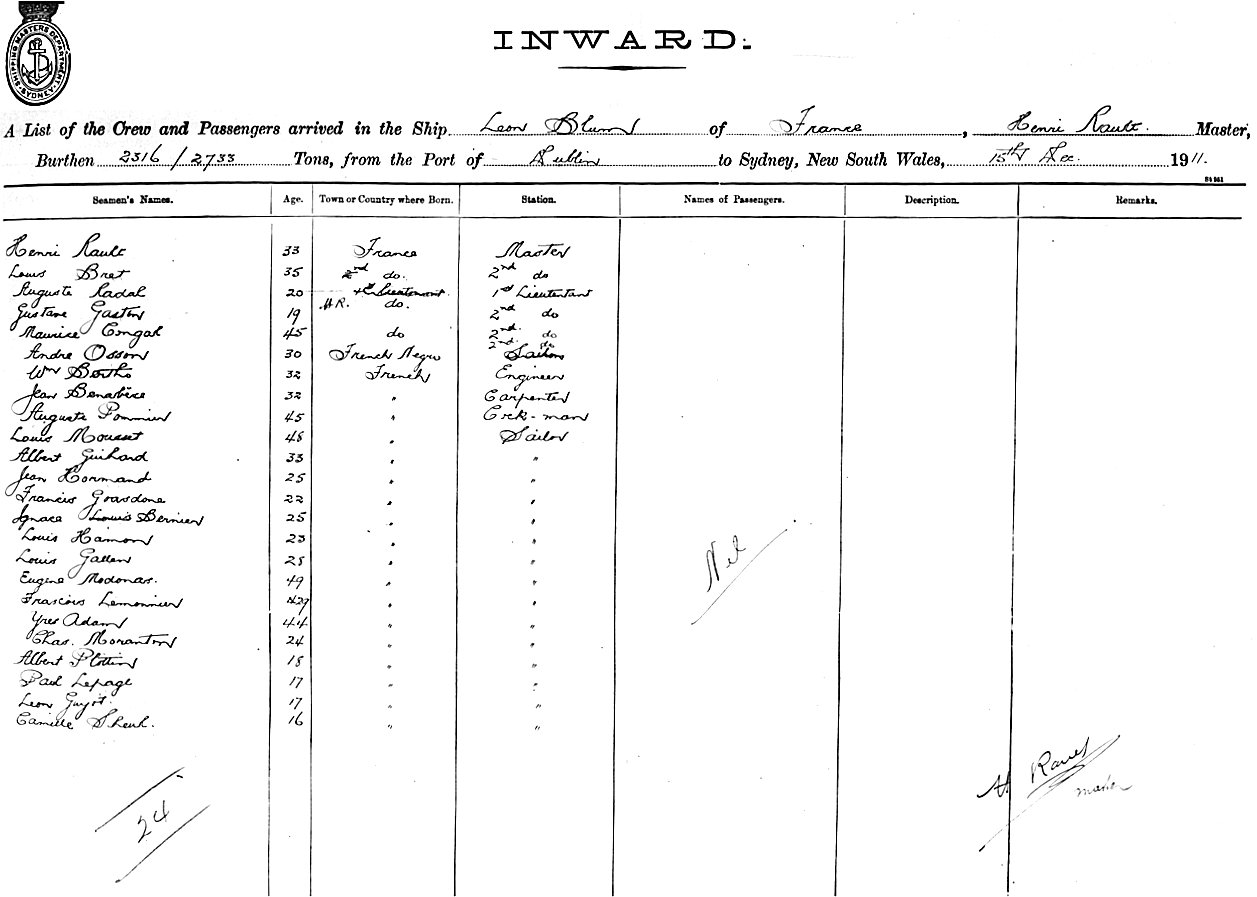 SHIPPING MASTERS DEPARTMENT SYDNEY
INWARD.
A List of the Crew and Passengers arrived in the Ship Leon Blum of France, Henri Rault. Master,
Burthen 2316/2733 Tons, from the Port of Dublin to Sydney, New South Wales, 15th Dec. 1911.
Seamen's Names. Age. Town or Country where Born. Station. Names of Passengers. Description. Remarks.
Henri Rault 33 France Master
Louis Bret 35 do. 2nd do
Auguste Radal 20 1st Lieutenant 1st Lieutentant
Gustave Gaston 19 do. 2nd do
Maurice 45 do 2nd do
Andre Osson 30 French Negro Sailor
Wm Berths 32 French Engineer
Jean 32 " Carpenter
Auguste Pommier 45 "
Louis Mousset 48 " Sailor
Albert Guihard 33 " "
Jean Hormand 25 " "
Francis Grasdone 22 " "
Ignace Louis Bernier 25 " "
Louis Hamon 23 " "
Louis Gallen 28 " "
Eugene Modonas. 49 " "
Frascois Lemonnier " "
Yves Adam 44 " "
Chas. Moranton 24 " "
Albert Plottin 18 " "
Paul Lepage 17 " "
Leon Guyot. 17 " "
Camille 16 " "
Nil
24
master